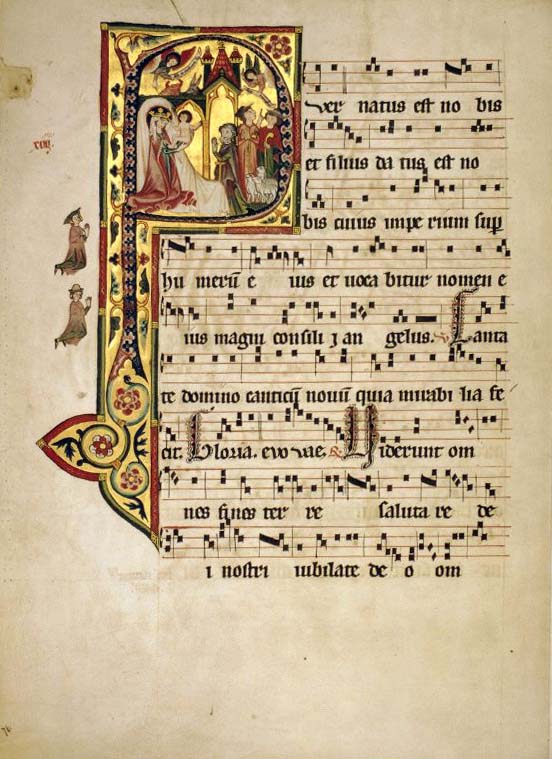 P
uer natus est no bis
et filius da tus est no
bis cuius impe rium sup
hu merū e ius et uoca bitur nomen e
ius magni consili j an gelus. Canta
te domino canticū nouū quia mirabi lia fe
cit. Gloria. evo vae. Viderunt om
nes fines ter re saluta re de
i nostri iubilate de o om